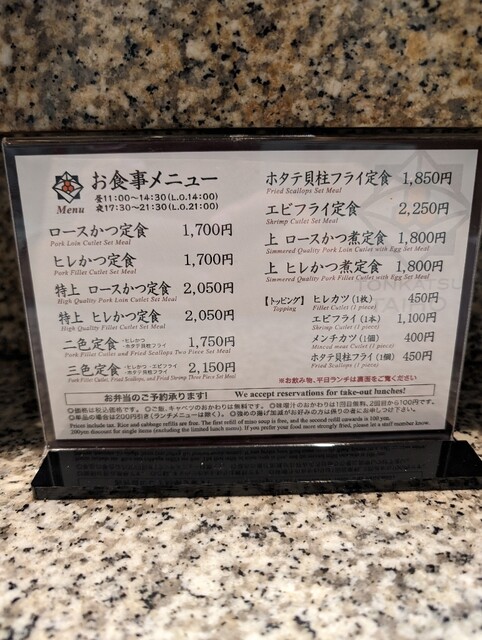 お食事メニュー
Menu
昼11:00〜14:30(L.O.14:00)
夜17:30〜21:30(L.O.21:00)
ロースかつ定食 1,700円
Pork Loin Cutlet Set Meal
ヒレかつ定食 1,700円
Pork Fillet Cutlet Set Meal
特上 ロースかつ定食 2,050円
High Quality Pork Loin Cutlet Set Meal
特上 ヒレかつ定食 2,050円
High Quality Fillet Cutlet Set Meal
二色定食 ・ヒレかつ ・ホタテ貝柱フライ 1,750円
Pork Fillet Cutlet and Fried Scallops Two Piece Set Meal
三色定食 ・ヒレかつ ・エビフライ ・ホタテ貝柱フライ 2,150円
Pork Fillet Cutlet, Fried Scallops, and Fried Shrimp Three Piece Set Meal
ホタテ貝柱フライ定食 1,850円
Fried Scallops Set Meal
エビフライ定食 2,250円
Shrimp Cutlet Set Meal
上 ロースかつ煮定食 1,800円
Simmered Quality Pork Loin Cutlet with Egg Set Meal
上 ヒレかつ煮定食 1,800円
Simmered Quality Pork Fillet Cutlet with Egg Set Meal
【トッピング】 ヒレカツ(1枚) 450円
Topping Fillet Cutlet (1 piece)
エビフライ(1本) 1,100円
Shrimp Cutlet (1 piece)
メンチカツ(1個) 400円
Minced meat Cutlet (1 piece)
ホタテ貝柱フライ(1個) 450円
Fried Scallops (1 piece)
※お飲み物、平日ランチは裏面をご覧ください
お弁当のご予約承ります! We accept reservations for take-out lunches!
◎価格は税込価格です。◎ご飯、キャベツのおかわりは無料です。◎味噌汁のおかわりは1回目無料、2回目から100円です。
◎単品の場合は200円引き(ランチメニューは除く)。◎強めの揚げ加減がお好みの方は係りの者にお申しつけ下さい。
Prices include tax. Rice and cabbage refills are free. The first refill of miso soup is free, and the second refill onwards is 100 yen.
200yen discount for single items (excluding the limited lunch menu). If you prefer your food more strongly fried, please let a staff member know.